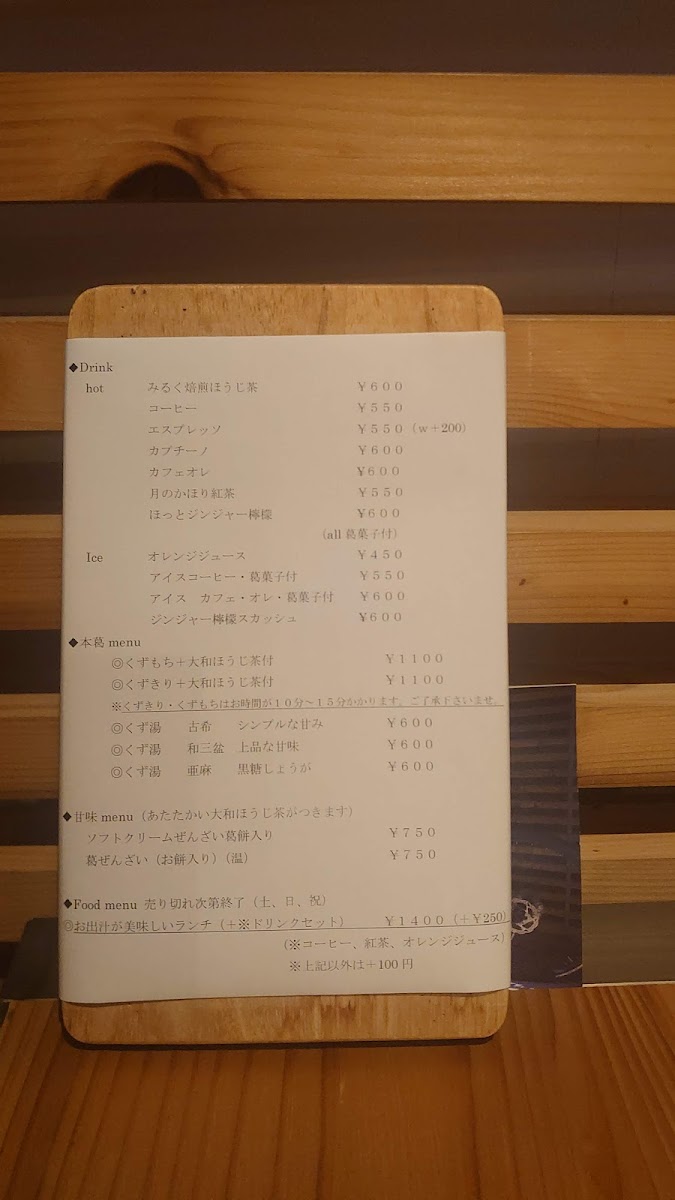 ◆Drink
hot　みるく焙煎ほうじ茶　￥６００
コーヒー　￥５５０
エスプレッソ　￥５５０（w＋200）
カプチーノ　￥６００
カフェオレ　¥６００
月のかほり紅茶　￥５５０
ほっとジンジャー檸檬　¥６００
（all 葛菓子付）
Ice　オレンジジュース　￥４５０
アイスコーヒー・葛菓子付　￥５５０
アイス　カフェ・オレ・葛菓子付　￥６００
ジンジャー檸檬スカッシュ　¥６００
◆本葛 menu
◎くずもち＋大和ほうじ茶付　￥１１００
◎くずきり＋大和ほうじ茶付　￥１１００
※くずきり・くずもちはお時間が１０分～１５分かかります。ご了承下さいませ。
◎くず湯　古希　シンプルな甘み　￥６００
◎くず湯　和三盆　上品な甘味　￥６００
◎くず湯　亜麻　黒糖しょうが　￥６００
◆甘味 menu（あたたかい大和ほうじ茶がつきます）
ソフトクリームぜんざい葛餅入り　￥７５０
葛ぜんざい（お餅入り）（温）　￥７５０
◆Food menu 売り切れ次第終了（土、日、祝）
◎お出汁が美味しいランチ（＋※ドリンクセット）　￥１４００（＋￥250）
（※コーヒー、紅茶、オレンジジュース）
※上記以外は＋100 円